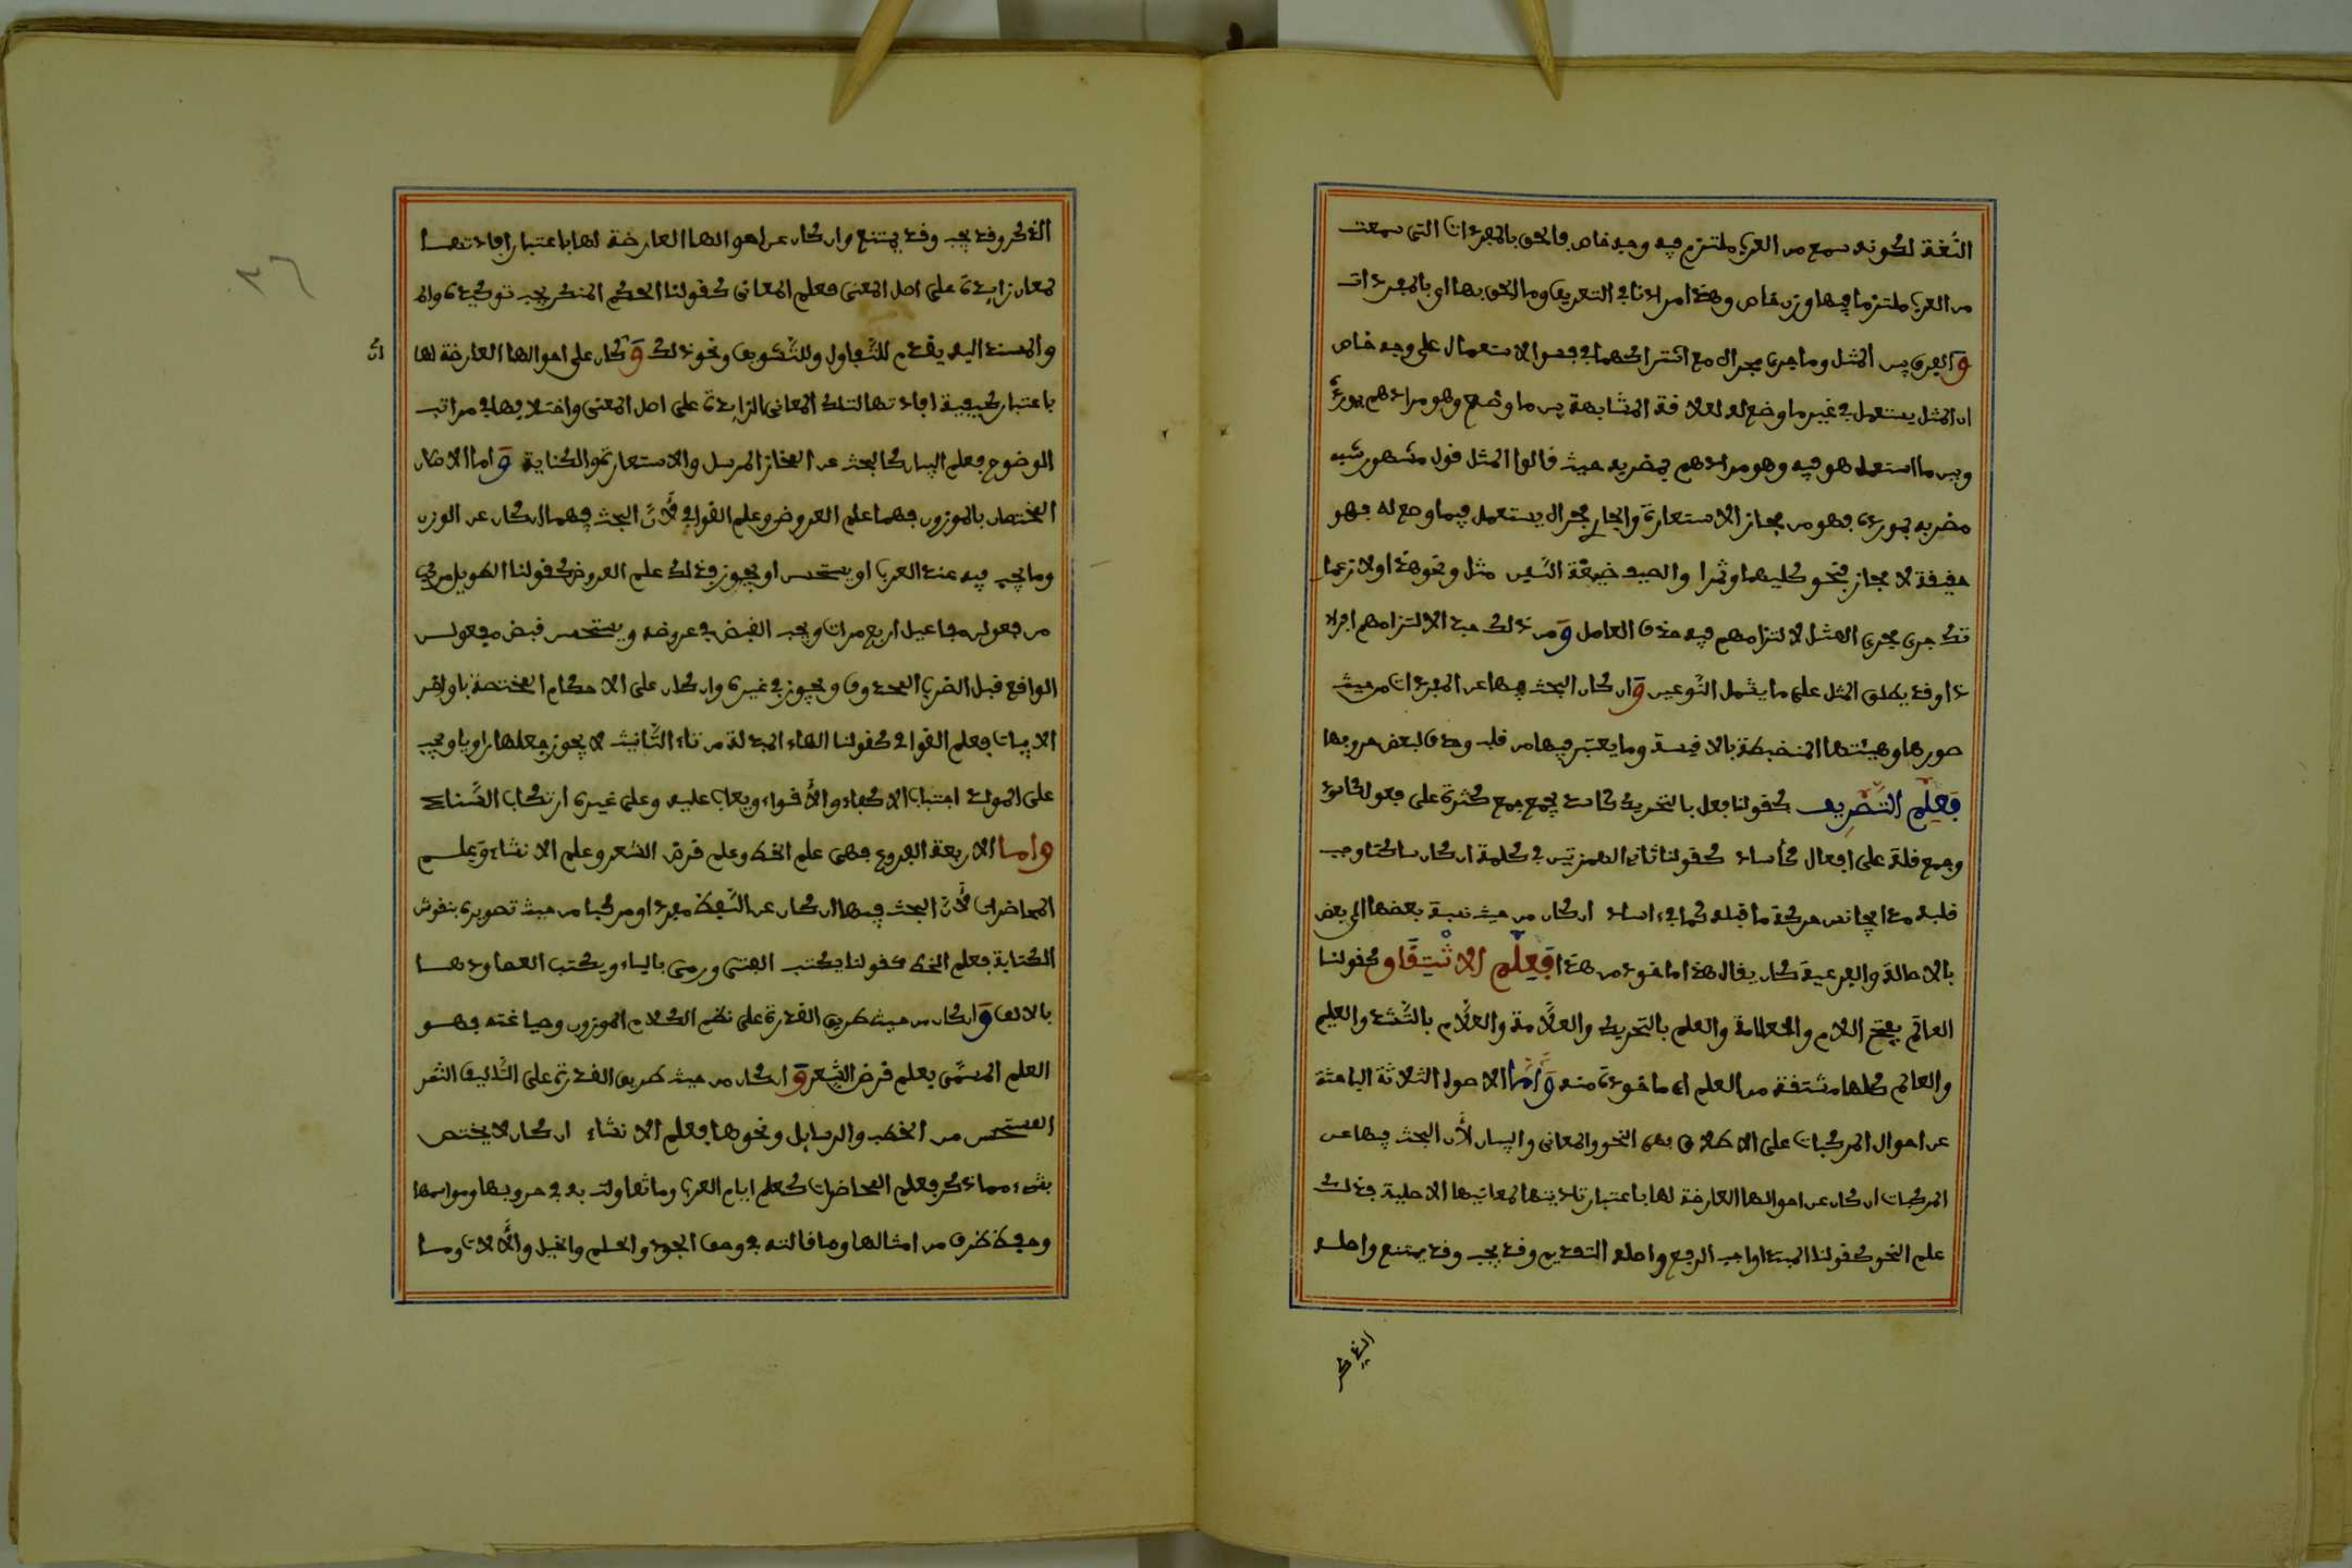 اللغة لكونه سمع من العرب ملتزم فيه وجه خاص فالحق بالمفردات التي سمعت
من العرب ملتزما فيها وزن خاص وهذا مرادنا في التعريف وما الحق بها اي بالمفردات
و الفرق بين المثل وما جرى مجراه مع اشتراكهما في الاستعمال على وجه خاص
ان المثل يستعمل في غير ما وضع له لعلاقة المشابهة بين ما وضع وهو مرادهم بمورده
وبين ما استعمل هو فيه وهو مرادهم بمضربه حيث قالوا المثل قول مشهور شبه
مضربه بمورده فهو من مجاز الاستعارة والجاري مجراه يستعمل فيما وضع له فهو
حقيقة لا مجاز فنحو كليهما وتمرا والصيف ضيعت اللبن مثل ونحو هذا ولا زعما
تك جرى مجرى المثل لالتزامهم فيه حذف العامل و من ذلك حبذا لالتزامهم افراد
ذا وقد يطلق المثل على ما يشمل النوعين و ان كان البحث فيها عن المفردات من حيث
صورها وهيئتها المنضبطة بالاقيسة وما يعتبر فيها من قلب وحذف لبعض حروفها
فعلم التصريف كقولنا فعل بالتحريك كاسد يجمع جمع كثرة على فعول كاسود
وجمع قلة على افعال كأساد كقولنا ثاني الهمزتين في كلمة ان كان ساكنا وجب
قلبه مدا يجانس حركة ما قبله كما في اساد ان كان من حيث نسبة بعضها الى بعض
بالاصالة والفرعية كان يقال هذا ماخوذ من هذا فعلم الاشتقاق كقولنا
العالم بفتح اللام والعلامة والعلم بالتحريك والعلامة والعلام بالتشد والعليم
والعالم كلها مشتقة من العلم اي ماخوذة منه و اما الاصول الثلاثة الباحثة
عن احوال المركبات على الاطلاق فهي النحو والمعاني والبيان لأن البحث فيها عن
المركبات ان كان عن احوالها العارضة لها باعتبار تاديتها لمعانيها الاصلية فذلك
علم النحو كقولنا المبتدا واجب الرفع واصله التقديم وقد يجب وقد يمتنع واصله
الذكر
الذكر وقد يجب وقد يمتنع وان كان عن احوالها العارضة لها باعتبار افادتها
لمعان زايدة على اصل المعنى فعلم المعاني كقولنا الحكم المنكر يجب توكيده
والمسند اليه يقدم للتفاول وللتشويق ونحو ذلك و كان على احوالها العارضة لها
ان
باعتبار كيفية افادتها لتلك المعاني الزايدة على اصل المعنى واختلافها في مراتب
الوضوح فعلم البيان كالبحث عن المجاز المرسل والاستعارة والكناية و اما الاصلان
المختصان بالموزون فهما علم العروض وعلم القوافي لأن البحث فيهما ان كان عن الوزن
وما يجب فيه عند العرب او يستحسن او يجوز فذلك علم العروض كقولنا الطويل مركب
من فعولن مفاعيل اربع مرات ويجب القبض في عروضه ويستحسن قبض فعولن
الواقع قبل الضرب المحذوف ويجوز في غيره وان كان على الاحكام المختصة باواخر
الابيات فعلم القوافي كقولنا الهاء المبدلة من تاء التانيث لا يجوز جعلها رويا ويجب
على المولد اجتناب الاكفاء والأقواء ويعاب عليه وعلى غيره ارتكاب السناد
واما الاربعة الفروع فهي علم الخط وعلم قرض الشعر وعلم الانشاء وعلم
المحاضرات لأن البحث فيها ان كان عن اللفظ مفردا ومركبا من حيث تصويره بنقوش
الكتابة فعلم الخط كقولنا يكتب الفتى ورمى بالياء ويكتب العصا ودعا
بالالف و ان كان من حيث طريق القدرة على نظم الكلام الموزون وصياغته فهو
العلم المسمى بعلم قرض الشعر و ان كان من حيث طريق القدرة على التاليف النثر
المستحسن من الخطب والرسايل ونحوها فعلم الانشاء ان كان لا يختص
بشيء مما ذكر فعلم المحاضرات كعلم ايام العرب وما تقاولت به في حروبها ومواسمها
وحفظ طرف من امثالها وما قالته في وصف الجود والحلم والخيل والألات وما